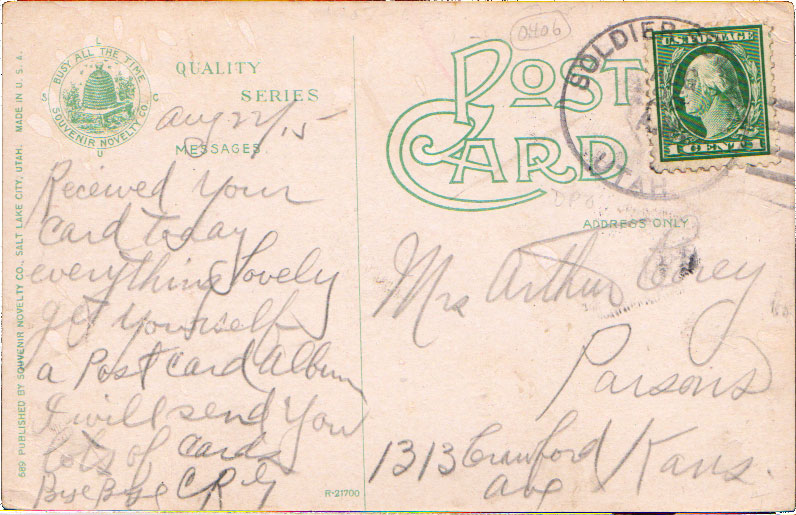 689 PUBLISHED BY SOUVENIR NOVELTY CO., SALT LAKE CITY, UTAH. MADE IN U. S. A.
BUSY ALL THE TIME
SOUVENIR NOVELTY CO.
S L C U
QUALITY
SERIES
MESSAGES.
Aug 22/15
Received your
Card today
everything Lovely
get yourself
a Post card album
I will send you
lots of cards
Bye Bye C R G
R-21700
0406
POST
CARD
ADDRESS ONLY
SOLDIER
UTAH
U.S. POSTAGE
1 CENT 1
DPO
Mrs Arthur Corey
Parsons
1313 Crawford Kans.
Ave